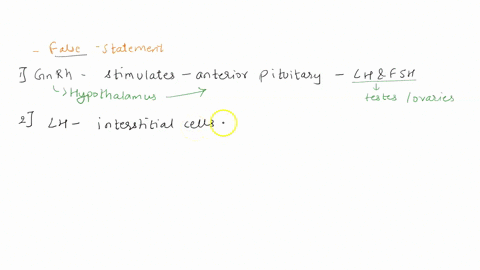 - False - statement
1] GnRh - stimulates - anterior pituitary - LH & FSH
↳ Hypothalamus → ↓ testes / ovaries
2] LH - interstitial cells.